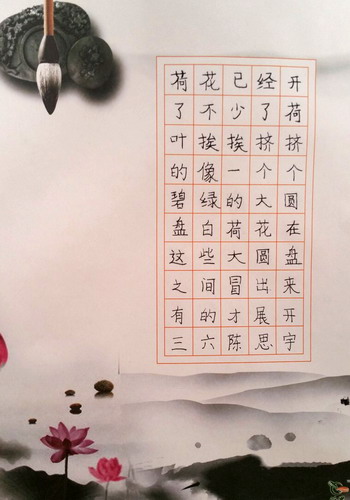 荷花已经开
了不少了荷
叶挨挨挤挤
的像一个个
碧绿的大圆
盘白荷花在
这些大圆盘
之间冒出来
有的才展开
三六陈思宇